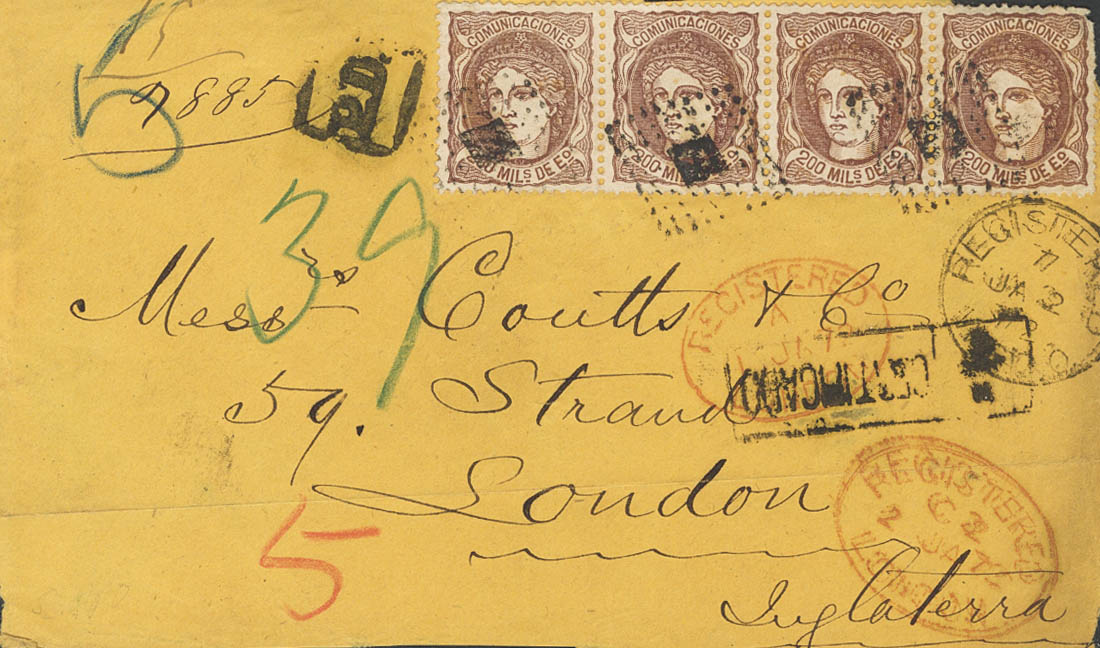 COMUNICACIONES COMUNICACIONES COMUNICACIONES COMUNICACIONES
200 MILS DE EO 200 MILS DE EO 200 MILS DE EO 200 MILS DE EO
5
7885
PD
39
Messrs Coutts & Co
59. Strand
London
Inglaterra
5
REGISTERED
JA 2
REGISTERED
A
JA 7
CERTIFICADO
REGISTERED
C 2
2 JA 72
LONDON